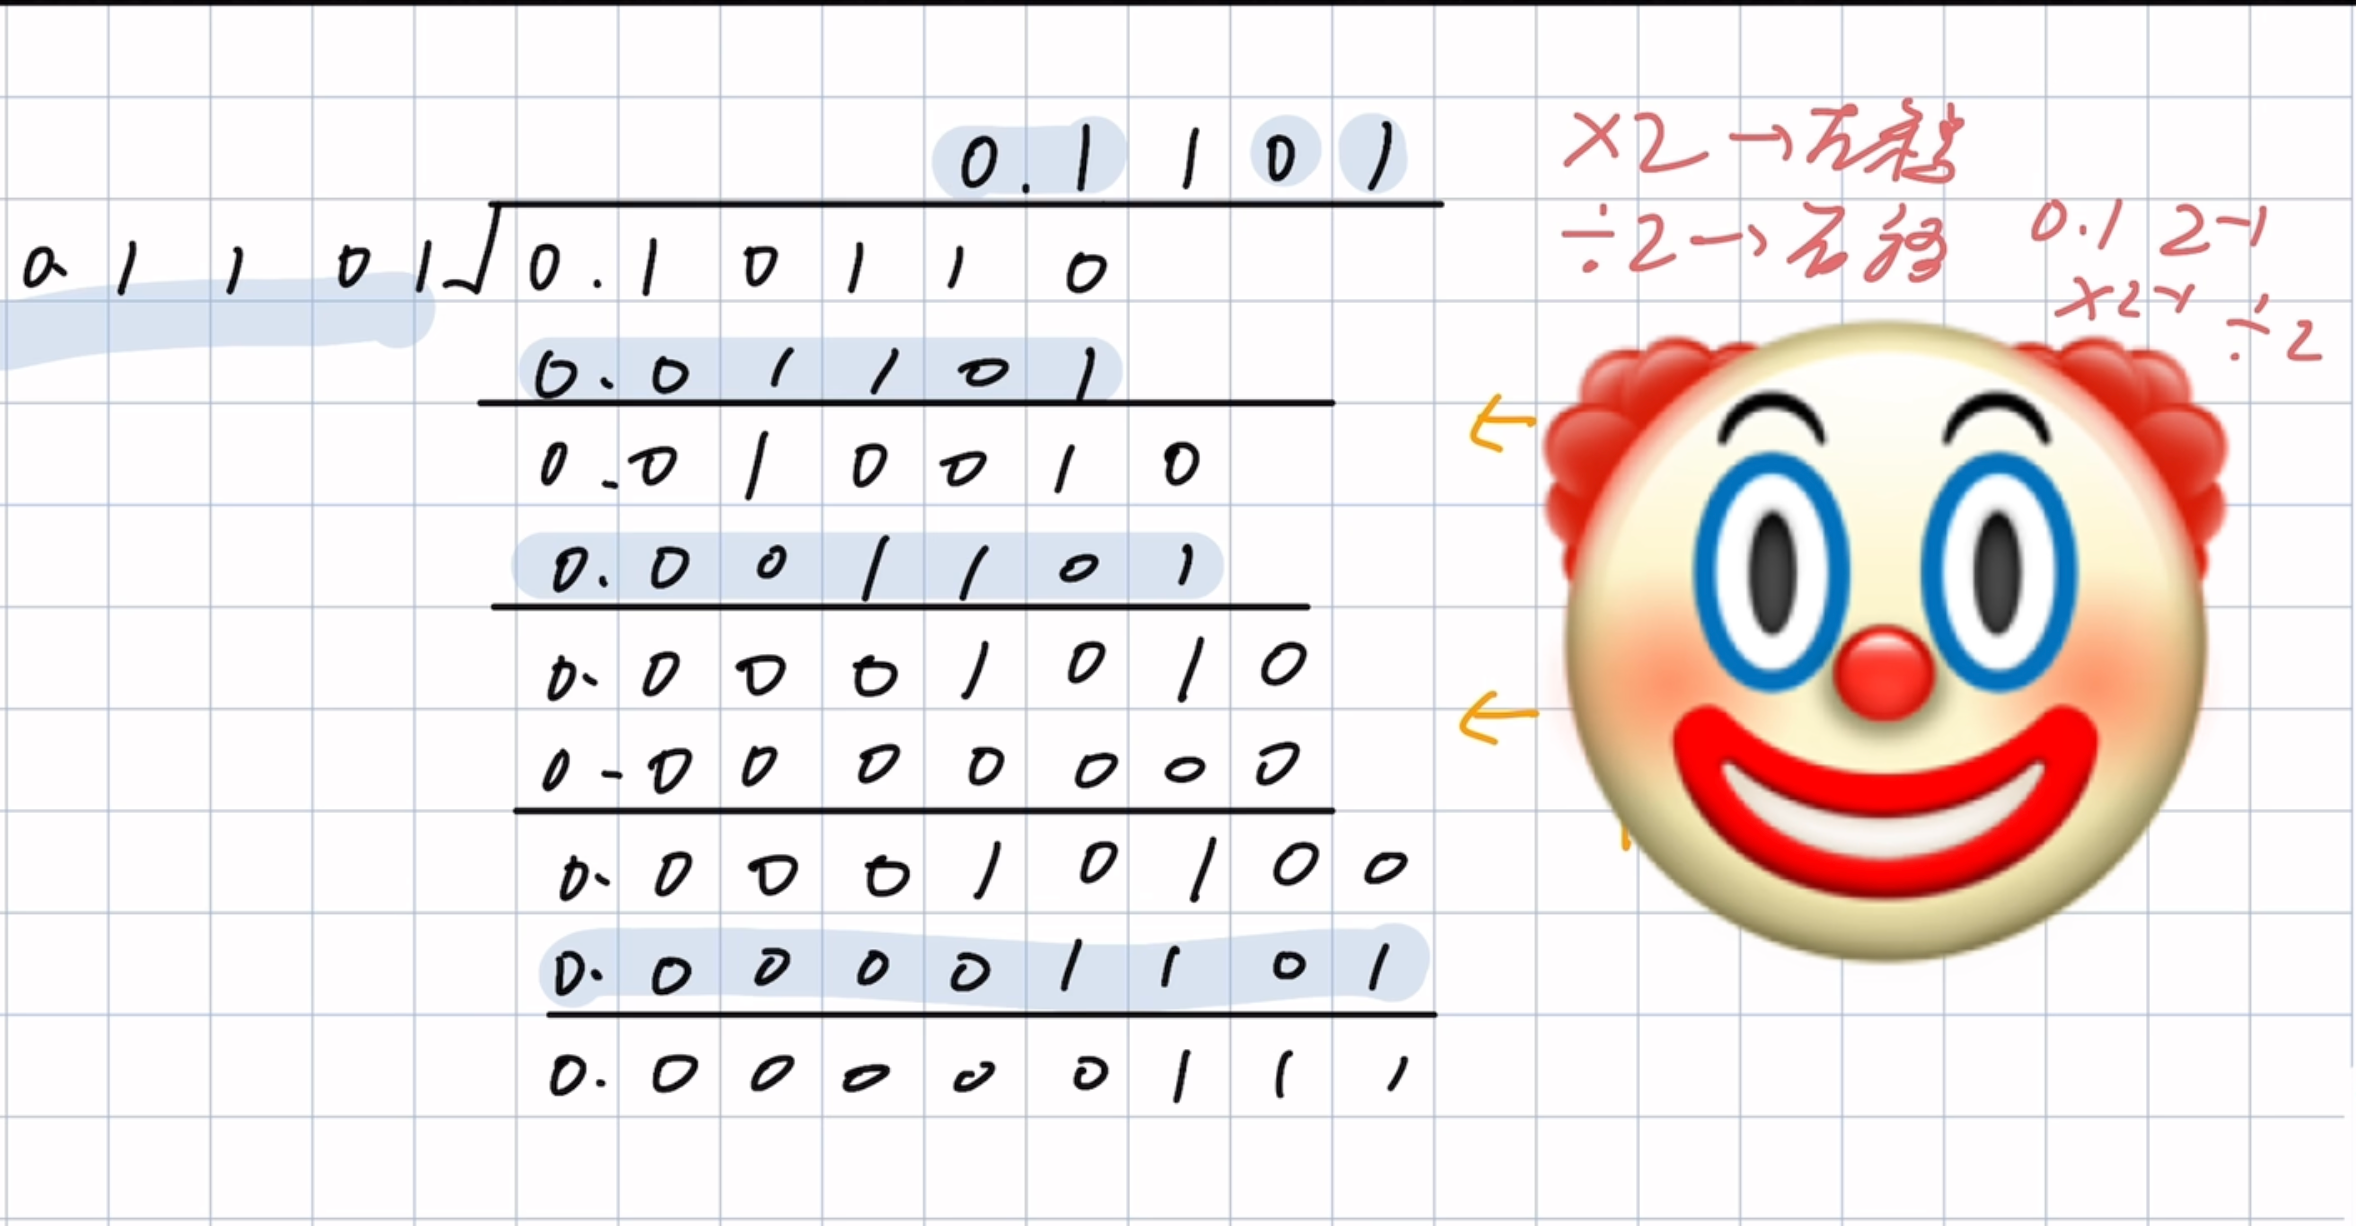 0.1101
0.1101√0.10110
0.01101
0.010010
0.001101
0.0001010
0.0000000
0.00010100
0.00001101
0.00000111
×2→左移
÷2→右移 0.1 2-1
×2-1
÷2